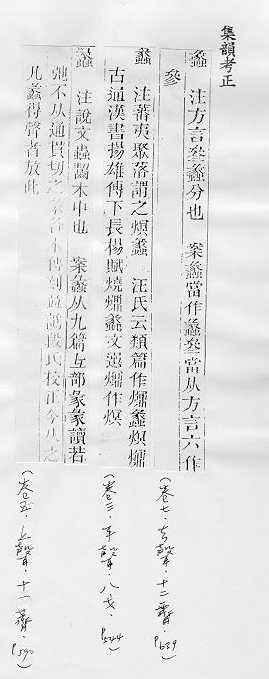 集韻考正
蠡 注方言叅蠡分也 案蠡當作蠡叅當从方言六作
參
蠡 注蕃夷聚落謂之熐蠡 汪氏云類篇作爤蠡熐爤
古通漢書揚雄傳下長楊賦燒爤蠡文選爤作熐
蠡 注說文蟲齧木中也 案蠡从九篇彑部彖彖讀若
弛不从通貫切之彖各本傳刻並譌段氏校正今从之
凡蠡得聲者放此
(卷七·去聲·十二霽·P629)
(卷三·平聲·八戈·P544)
(卷五·上聲·十一薺·P590)